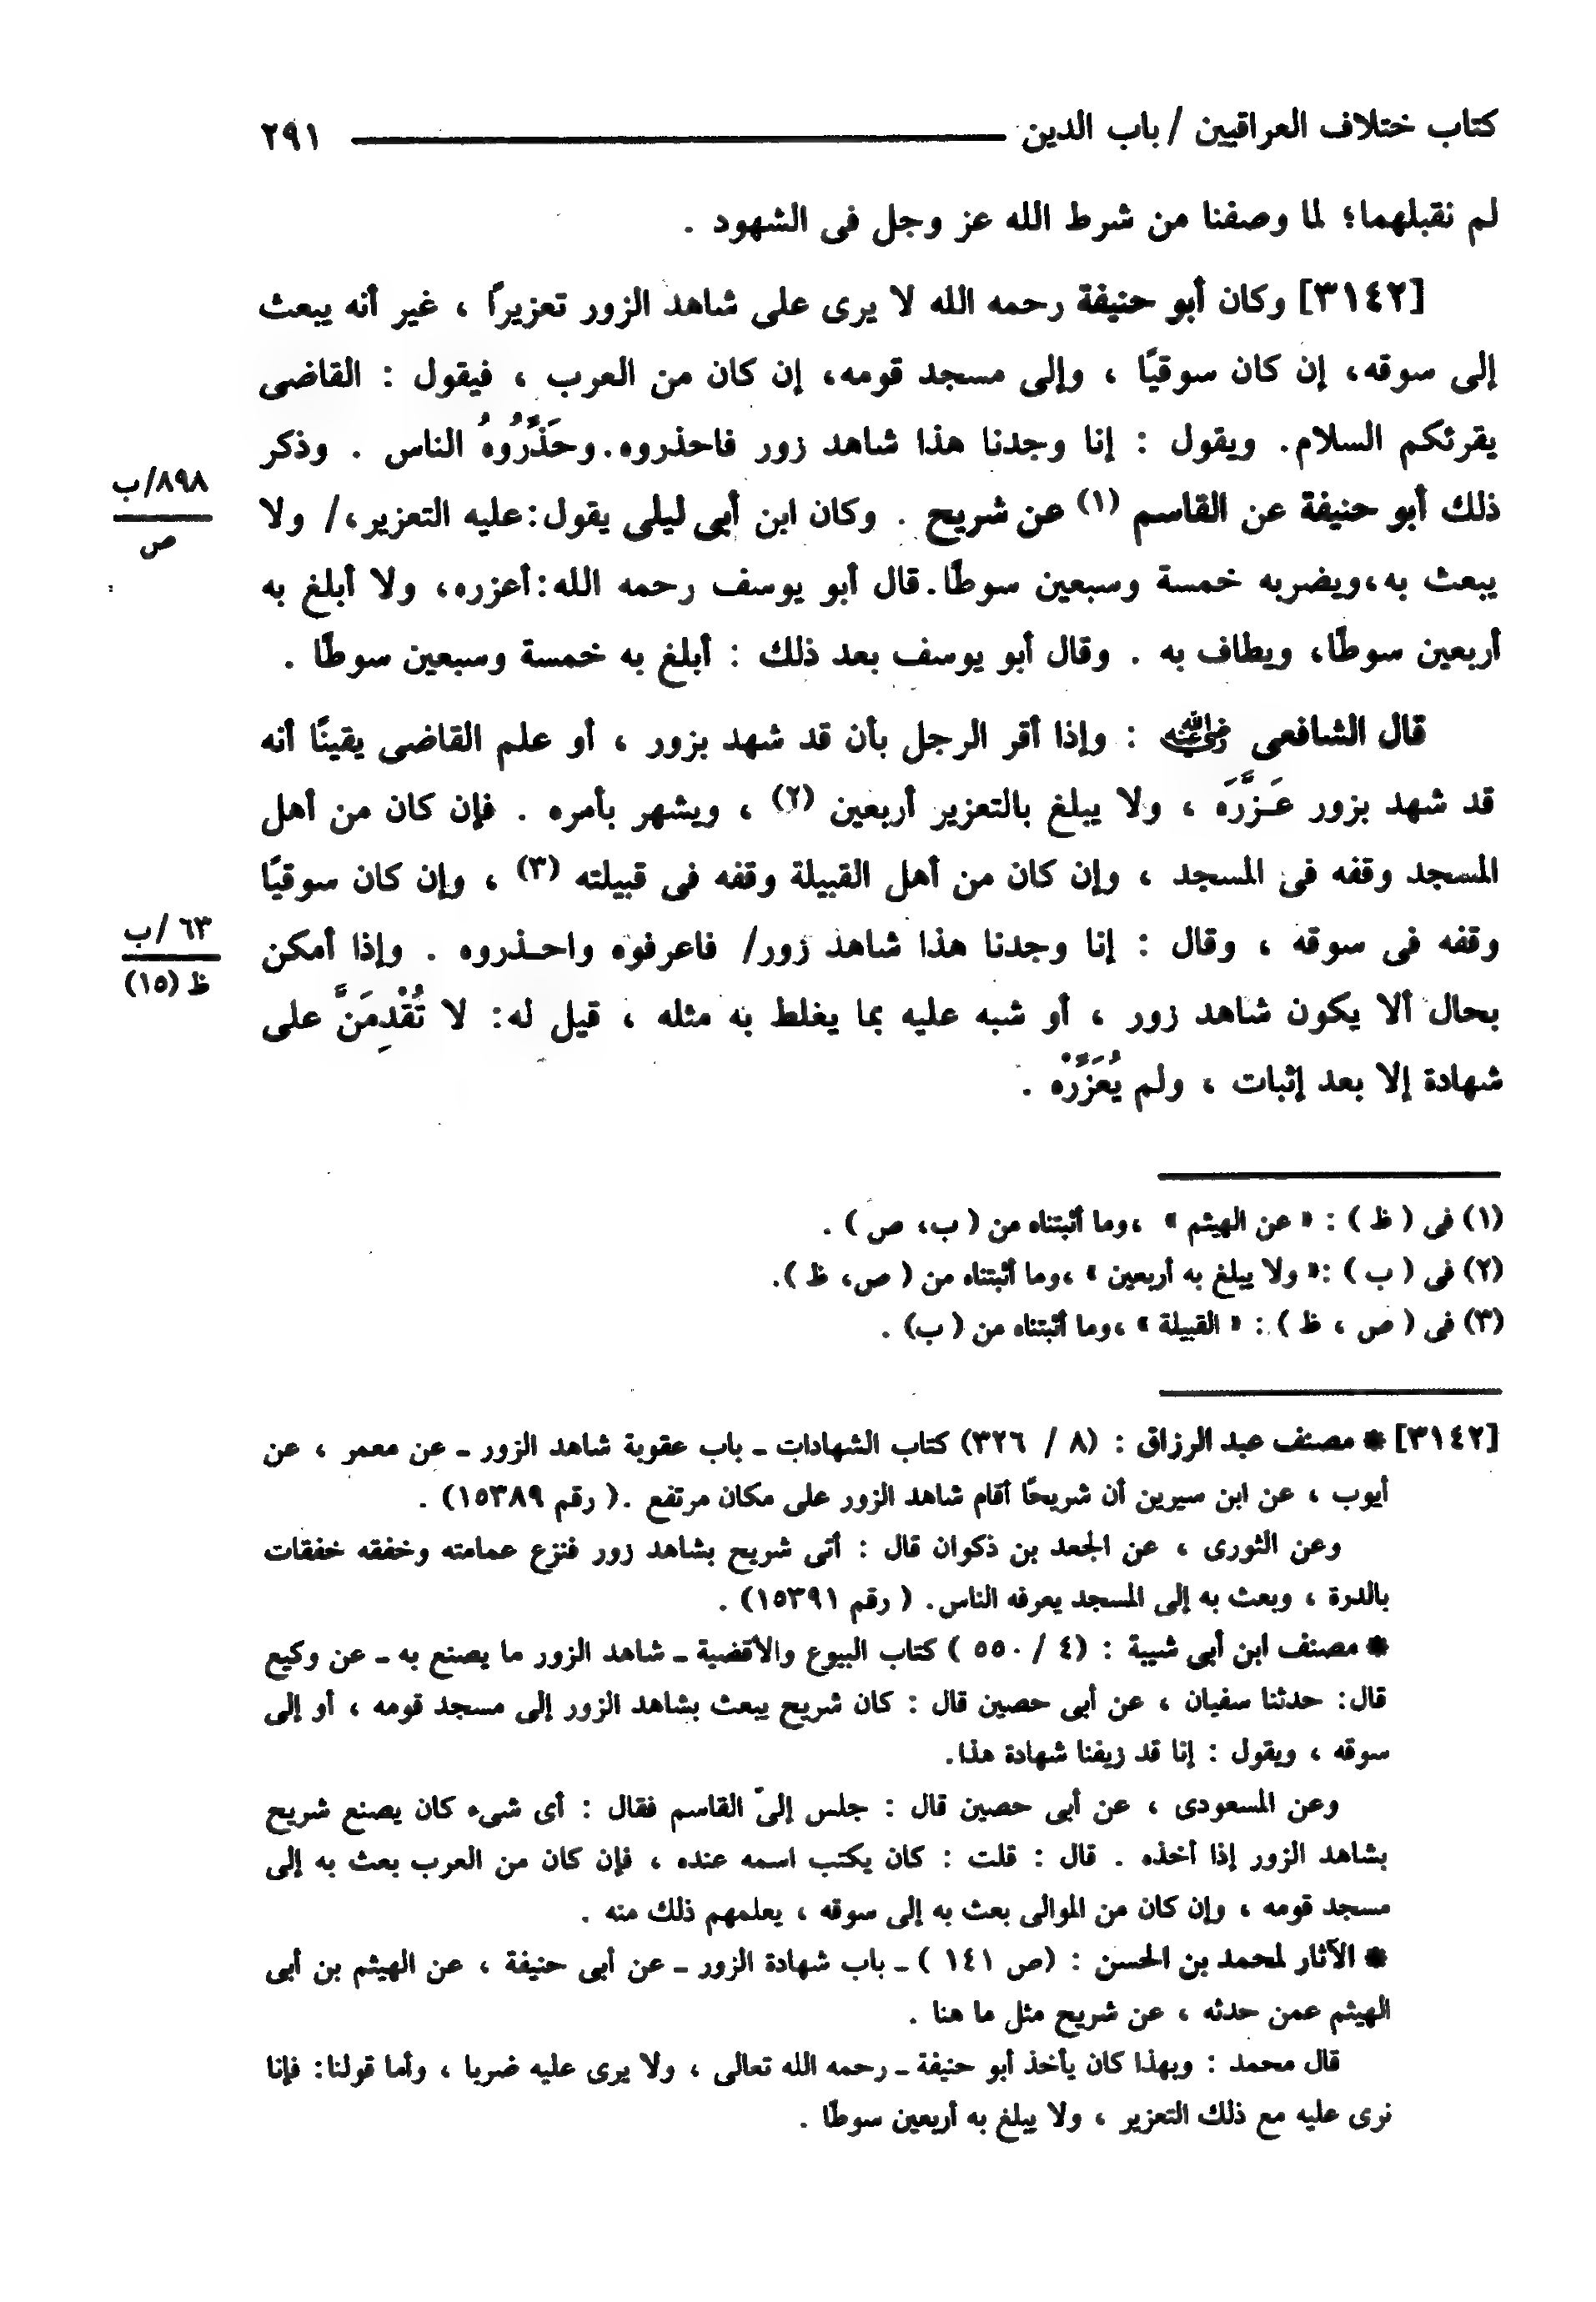 كتاب ختلاف العراقيين / باب الدين ٢٩١
لم نقبلهما؛ لما وصفنا من شرط الله عز وجل فى الشهود .
[٣١٤٢] وكان أبو حنيفة رحمه الله لا يرى على شاهد الزور تعزيراً ، غير أنه يبعث
إلى سوقه، إن كان سوقيًا ، وإلى مسجد قومه، إن كان من العرب ، فيقول : القاضى
يقرئكم السلام. ويقول : إنا وجدنا هذا شاهد زور فاحذروه.وحَذِّرُوهُ الناس . وذكر
ذلك أبو حنيفة عن القاسم (١) عن شريح . وكان ابن أبى ليلى يقول:عليه التعزير،/ ولا
٨٩٨/ب
ص
يبعث به،ويضربه خمسة وسبعين سوطًا.قال أبو يوسف رحمه الله:أعزره، ولا أبلغ به
أربعين سوطًا، ويطاف به . وقال أبو يوسف بعد ذلك : أبلغ به خمسة وسبعين سوطًا .
قال الشافعى رضي الله عنه : وإذا أقر الرجل بأن قد شهد بزور ، أو علم القاضى يقينًا أنه
قد شهد بزور عَـزَّرَه ، ولا يبلغ بالتعزير أربعين (٢) ، ويشهر بأمره . فإن كان من أهل
المسجد وقفه فى المسجد ، وإن كان من أهل القبيلة وقفه فى قبيلته (٣) ، وإن كان سوقيًا
وقفه فى سوقه ، وقال : إنا وجدنا هذا شاهد زور/ فاعرفوه واحـذروه . وإذا أمكن
٦٣ /ب
ظ (١٥)
بحال ألا يكون شاهد زور ، أو شبه عليه بما يغلط به مثله ، قيل له: لا تُقْدِمَنَّ على
شهادة إلا بعد إثبات ، ولم يُعَزِّرْه .
(١) فى ( ظ ) : « عن الهيثم » ،وما أثبتناه من ( ب، ص ) .
(٢) فى ( ب ) :« ولا يبلغ به أربعين » ،وما أثبتناه من ( ص، ظ ).
(٣) فى ( ص ، ظ ) : « القبيلة » ،وما أثبتناه من ( ب) .
[٣١٤٢] * مصنف عبد الرزاق : (٨ / ٣٢٦) كتاب الشهادات ـ باب عقوبة شاهد الزور ـ عن معمر ، عن
أيوب ، عن ابن سيرين أن شريحًا أقام شاهد الزور على مكان مرتفع .( رقم ١٥٣٨٩) .
وعن الثورى ، عن الجعد بن ذكوان قال : أتى شريح بشاهد زور فنزع عمامته وخفقه خفقات
بالدرة ، وبعث به إلى المسجد يعرفه الناس. ( رقم ١٥٣٩١) .
* مصنف ابن أبى شيبة : (٤ / ٥٥٠ ) كتاب البيوع والأقضية ـ شاهد الزور ما يصنع به ـ عن وكيع
قال: حدثنا سفيان ، عن أبى حصين قال : كان شريح يبعث بشاهد الزور إلى مسجد قومه ، أو إلى
سوقه ، ويقول : إنا قد زيفنا شهادة هذا.
وعن المسعودى ، عن أبى حصين قال : جلس إلىّ القاسم فقال : أى شىء كان يصنع شريح
بشاهد الزور إذا أخذه . قال : قلت : كان يكتب اسمه عنده ، فإن كان من العرب بعث به إلى
مسجد قومه ، وإن كان من الموالى بعث به إلى سوقه ، يعلمهم ذلك منه .
* الآثار لمحمد بن الحسن : (ص ١٤١ ) ـ باب شهادة الزور ـ عن أبى حنيفة ، عن الهيثم بن أبى
الهيثم عمن حدثه ، عن شريح مثل ما هنا .
قال محمد : وبهذا كان يأخذ أبو حنيفة ـ رحمه الله تعالى ، ولا يرى عليه ضربا ، وأما قولنا: فإنا
نرى عليه مع ذلك التعزير ، ولا يبلغ به أربعين سوطًا .